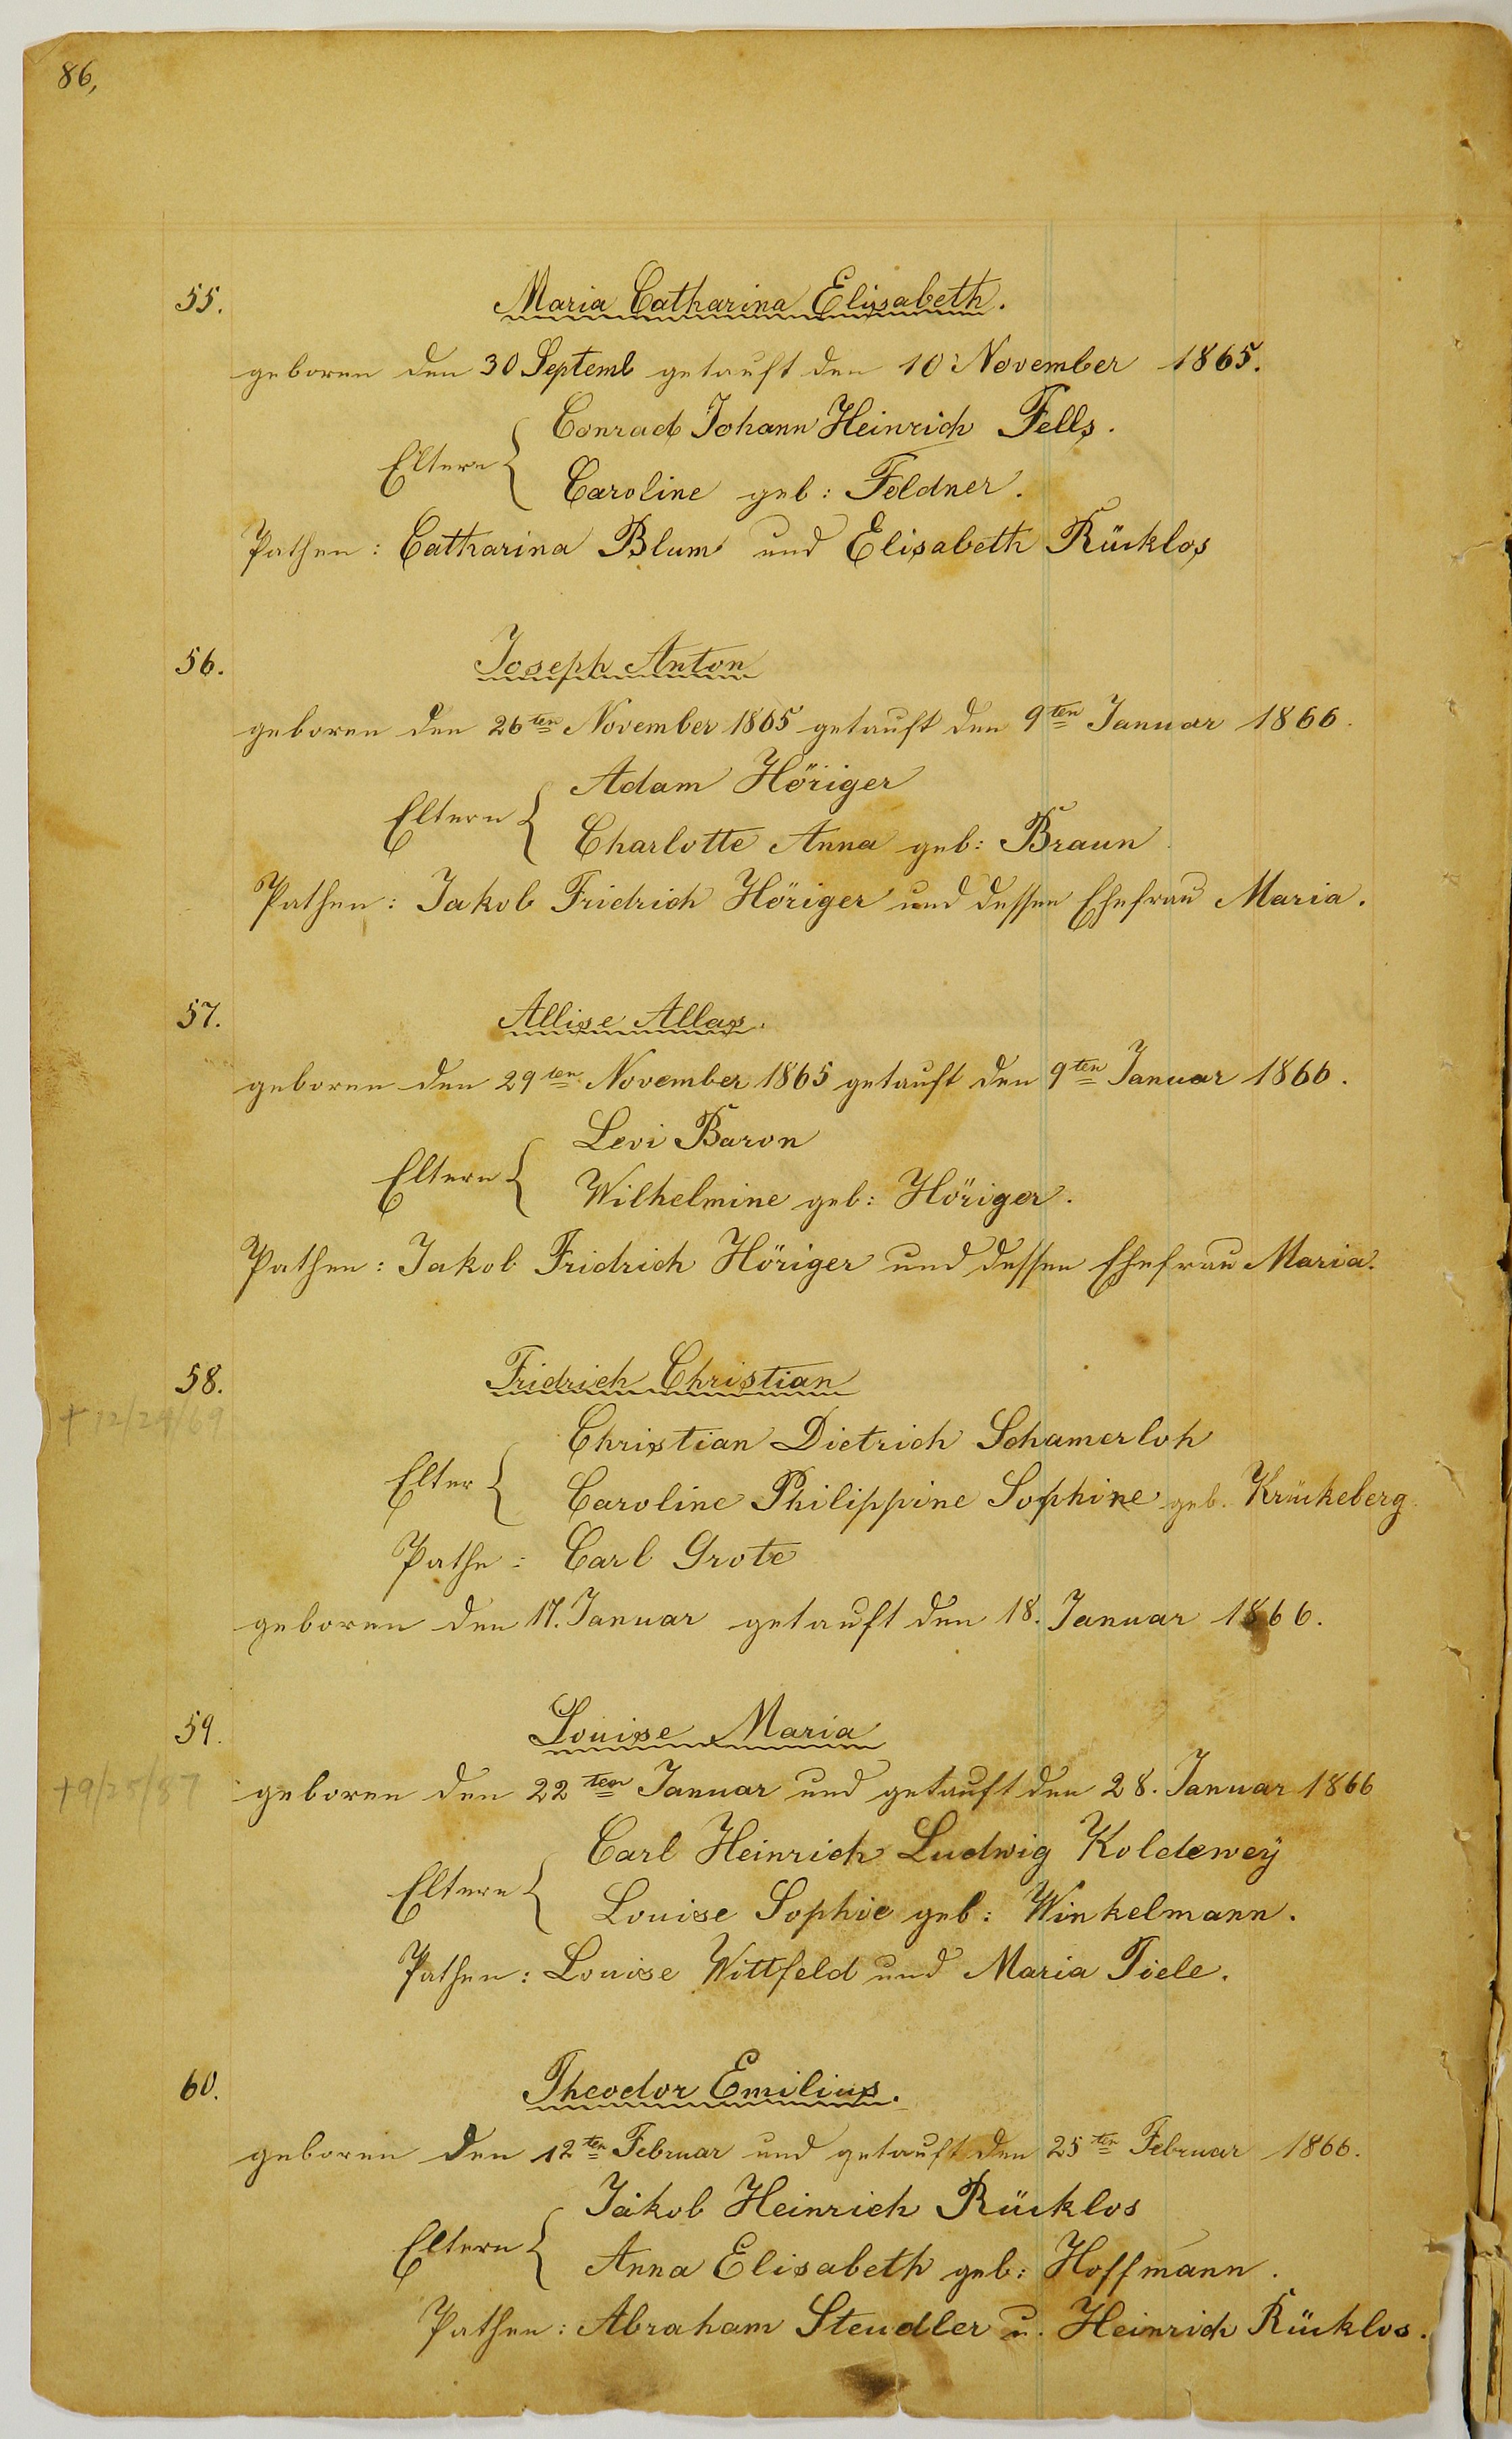 86,
55. Maria Catharina Elisabeth.
geboren den 30 Septemb getauft den 10 November 1865.
Eltern { Conrad Johann Heinrich Fells.
Caroline geb: Feldner.
Pathen: Catharina Blum und Elisabeth Rücklos
56. Joseph Anton
geboren den 26ten November 1865 getauft den 9ten Januar 1866.
Eltern { Adam Höriger
Charlotte Anna geb: Braun
Pathen: Jakob Fridrich Höriger und dessen Ehefrau Maria.
57. Allise Allas.
geboren den 29ten November 1865 getauft den 9ten Januar 1866.
Eltern { Levi Baron
Wilhelmine geb: Höriger.
Pathen: Jakob Fridrich Höriger und dessen Ehefrau Maria.
58. Fridrich Christian
+ 12/24/69
Christian Dietrich Schamerloh
Elter { Caroline Philippine Sophine geb. Krückeberg
Pathe: Carl Grote
geboren den 17. Januar getauft den 18. Januar 1866.
59. Louise Maria
+9/25/87
geboren den 22ten Januar und getauft den 28. Januar 1866
Eltern { Carl Heinrich Ludwig Koldewey
Louise Sophie geb: Winkelmann.
Pathen: Louise Wittfeld und Maria Tiele.
60. Theodor Emilius.
geboren den 12ten Februar und getauft den 25ten Februar 1866.
Eltern { Jakob Heinrich Rücklos
Anna Elisabeth geb: Hoffmann.
Pathen: Abraham Steudler u. Heinrich Rücklos.